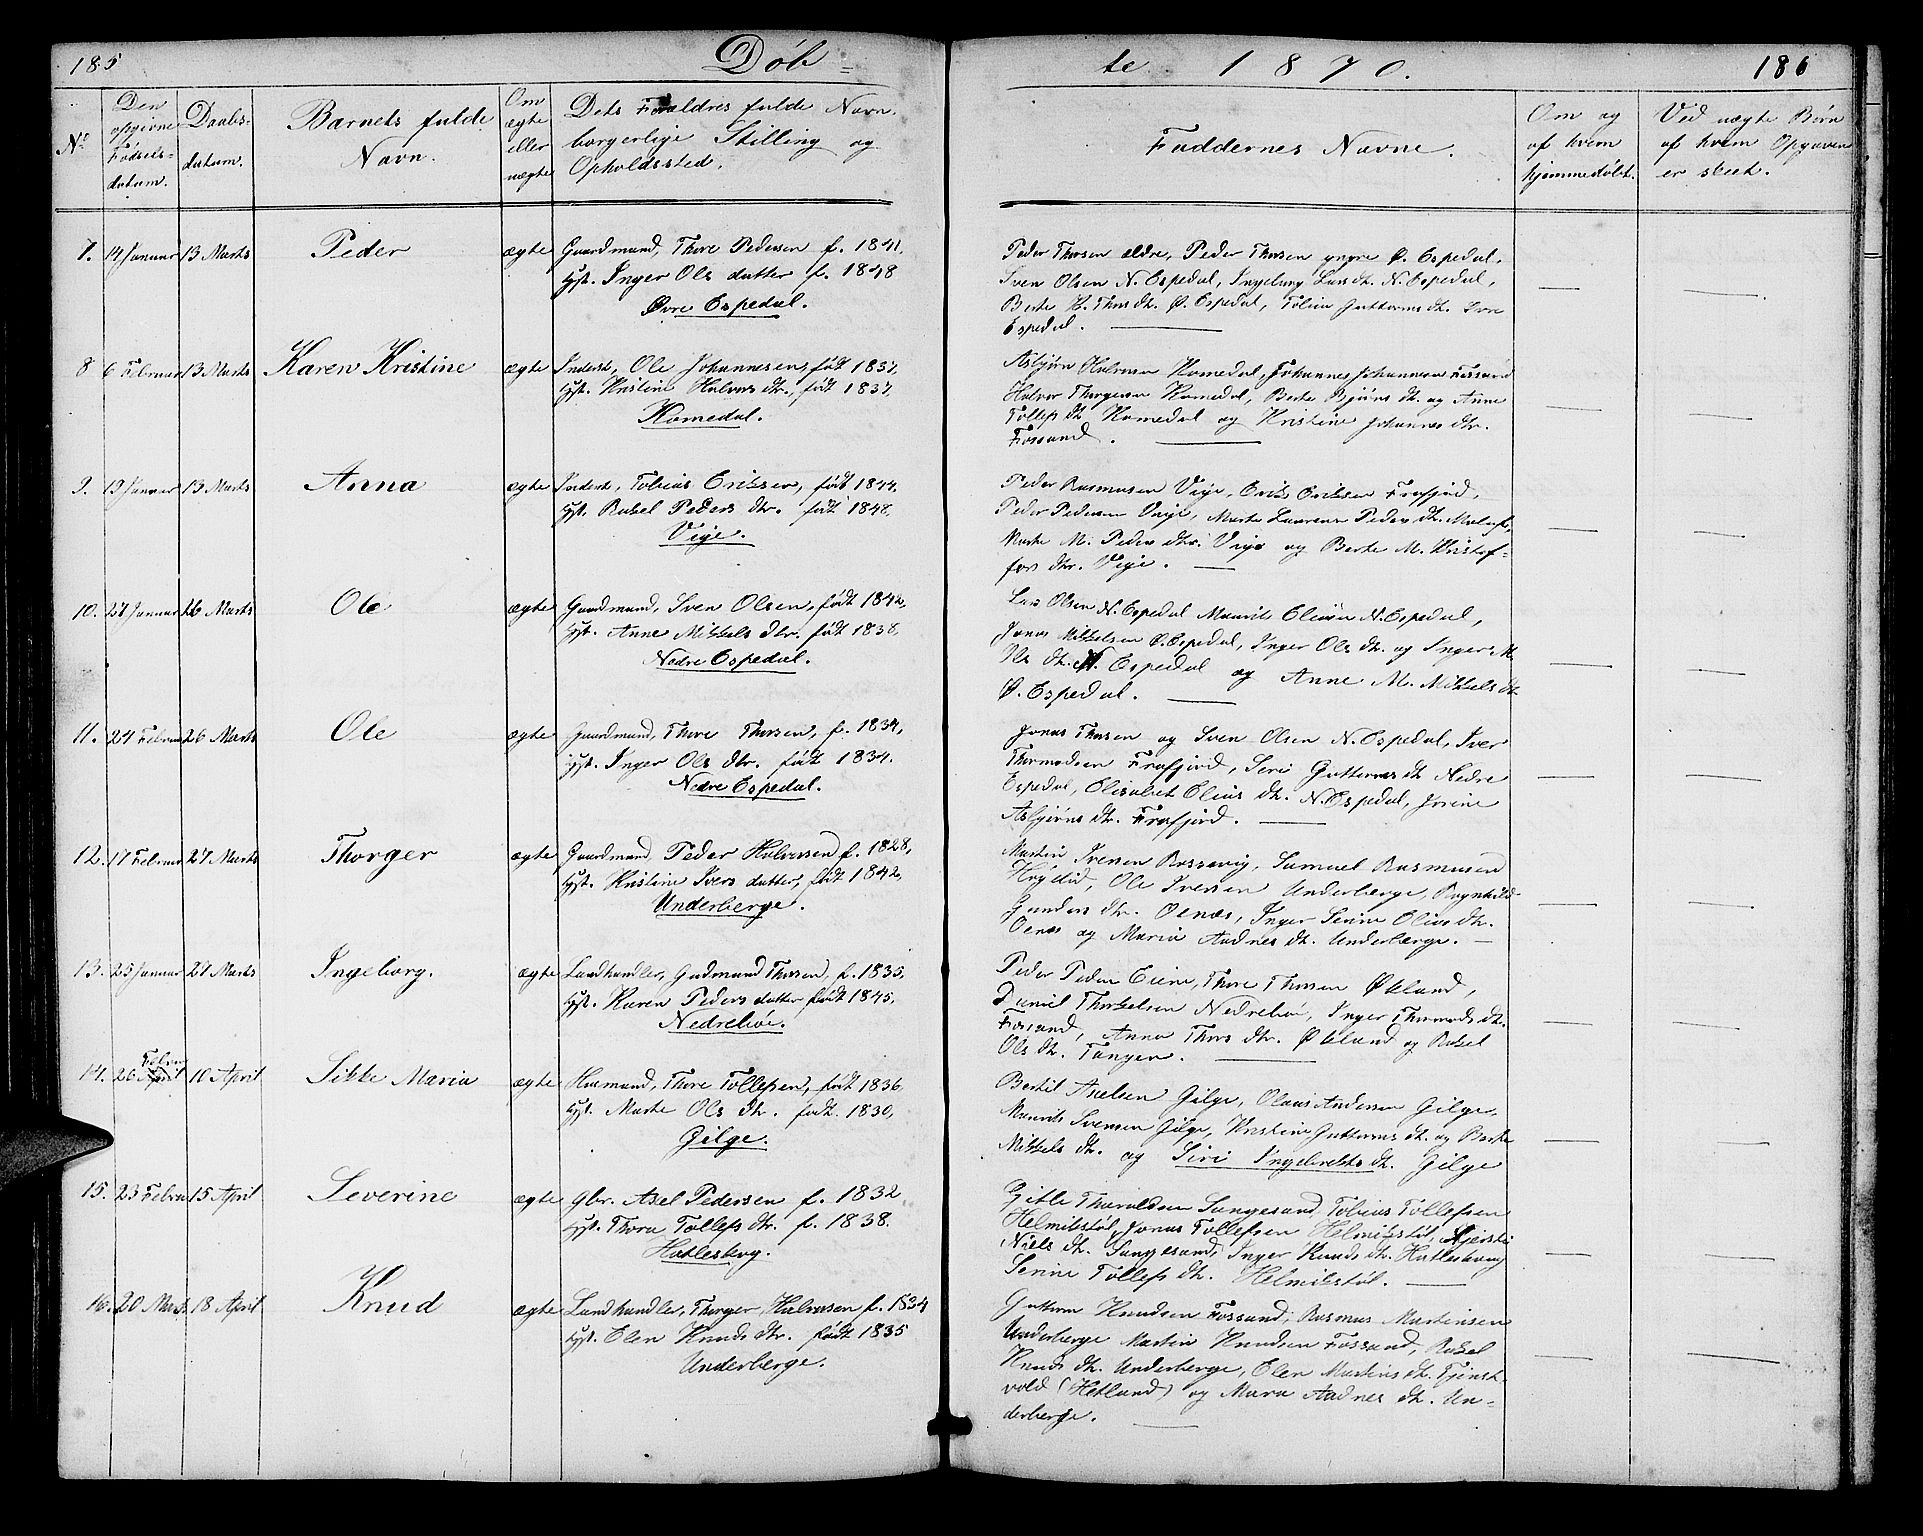 185
Døb-
te 1870.
186
No
Den opgivne Fødsels-datum.
Daabs-datum.
Barnets fulde Navn.
Om ægte eller uægte
Dets Forældres fulde Navn. borgerlige Stilling og Opholdssted.
Faddernes Navne.
Om og af hvem hjemmedøbt.
Ved uægte Børn af hvem Opgaven er skeet.
7. 14 Januar 13 Marts Peder ægte Gaardmand, Thore Pedersen f. 1841.
Hst. Inger Ols datter f. 1848
Øvre Espedal.
Peder Thorsen ældre, Peder Thorsen yngre Ø. Espedal,
Sven Olsen N. Espedal, Ingeborg Lars dt. N. Espedal,
Berte H. Thors dtr. Ø. Espedal, Tobia Guttorms dt. Øvre
Espedal.
8 6 Februar 13 Marts Karen Kristine ægte Inderst, Ole Johannesen, født 1837,
Hst. Kristine Halvors dtr., født 1837,
Komedal.
Asbjørn Halvorsen Komedal, Johannes Johannesen Fossand
Halvor Thorgersen Komedal, Berte Bjørns dt. og Anne
Tollefs dt. Komedal og Kristine Johannes dtr.
Fossand.
9. 19 Januar 13 Marts Anna ægte Inderst, Tobias Eriksen, født 1844,
Hst. Rakel Peders dtr. født 1848,
Veje.
Peder Rasmusen Veje, Erik Eriksen Frafjord,
Peder Pedersen Veje, Marte Laurense Peders dt.
Marte M. Peders dtr. Veje og Berte M. Kristof-
fers dtr. Veje.
10. 27 Januar 26 Marts Ole ægte Gaardmand, Sven Olsen, født 1842,
Hst. Anne Mikkels dtr. født 1838,
Nedre Espedal.
Lars Olsen N. Espedal Maurits Eliasen N. Espedal,
Jonas Mikkelsen Ø. Espedal, Inger Ols dt. og Inger M.
Ols dt. N. Espedal og Anne M. Mikkels dt
Ø. Espedal.
11. 24 Februar 26 Marts Ole ægte Gaardmand, Thore Thorsen, f. 1834,
Hst. Inger Ols dtr. født 1834.
Nedre Espedal.
Jonas Thorsen og Sven Olsen N. Espedal, Iver
Thormodsen Frafjord, Seri Guttorms dt Nedre
Espedal, Elisabet Elias dt. N. Espedal, Jorine
Asbjørns dt. Frafjord.
12. 17 Februar 27 Marts Thorger ægte Gaardmand, Peder Halvorsen f. 1828,
Hst. Kristine Ivers datter, født 1842,
Underberge.
Martin Iversen Rossavig, Samuel Rasmusen
Høgelid, Ole Iversen Underberge, Ragnhild
Gunders dtr. Oenæs, Inger Serine Olius dtr.
Oenæs og Maria Aadnes dt. Underberge.
13. 25 Januar 27 Marts Ingeborg. ægte Landhandler, Gudmund Thorsen, f. 1835,
Hst. Karen Peders datter født 1845,
Nedrebøe.
Peder Peders Eiene, Thore Thorsen Økland,
Daniel Thorkelsen Nedrebøe, Inger Thormods dt.
Fossand, Anna Thors dtr. Økland og Rakel
Ols dt. Tangen.
14. 26 April Februar 10 April Sikke Maria ægte Husmand, Thore Tollefsen, født 1836
Hst. Marte Ols dt. født 1830,
Gilge.
Bertil Axelsen Gilge, Olaus Andersen Gilge,
Maurits Svensen Gilge, Kristine Guttorms dt. og Berte
Mikkels dt. og Seri Ingebrets dt. Gilge
15. 23 Februar 15 April Severine ægte Gbr. Axel Pedersen f. 1832
Hst. Thora Tollefs dt. f. 1838.
Hatleskog.
Gitle Tharaldsen Sangesand Tobias Tollefsen
Helmikstøl, Jonas Tollefsen Helmikstøl, Kjersti
Niels dt. Sangesand, Inger Knuds dt. Hatleskog
Serine Tollefs dt. Helmikstøl.
16. 20 Marts 18 April Knud ægte Landhandler, Thorger Halvorsen f. 1834
Hst. Elen Knuds dtr. født 1835
Underberge.
Guttorm Knudsen Fossand, Rasmus Martinsen
Underberge Martin Knudsen Fossand, Rakel
Knuds dt. Underberge, Elen Martins dt. Tjenst-
vold (Hetland) og Mara Aadnes dt. Un-
derberge.